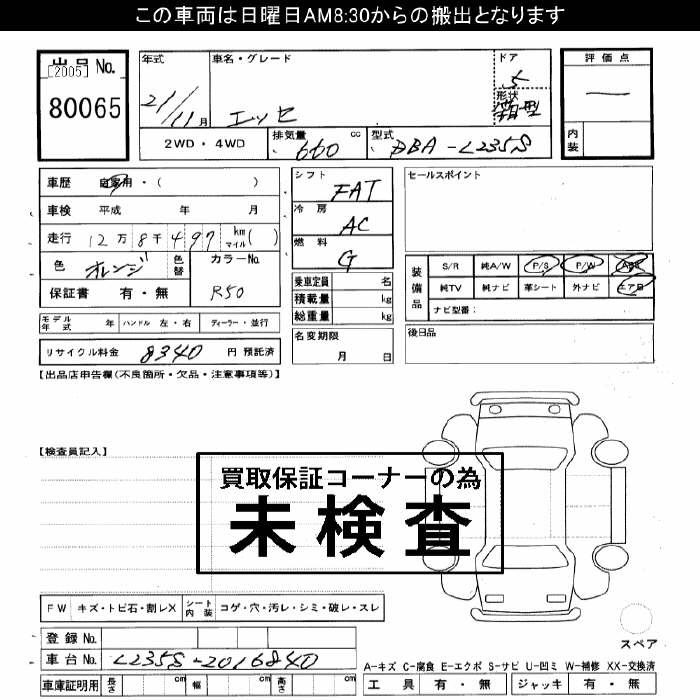 この車両は日曜日AM8:30からの搬出となります
出品 No.
[2005]
80065
年式 車名・グレード ドア
21/11 月 エッセ 5
形状
箱型
2WD・4WD 排気量 660 cc 型式 DBA-L235S
評価点
—
内装
車歴 自家用・( )
車検 平成 年 月
走行 12万8千497 km マイル( )
色 オレンジ 色替 カラーNo.
R50
保証書 有・無
モデル年式 年 ハンドル 左・右 ディーラー・並行
リサイクル料金 8340 円 預託済
シフト FAT
冷房 AC
燃料 G
乗車定員 名
積載量 kg
総重量 kg
名変期限
月 日
セールスポイント
装備品
S/R 純A/W P/S P/W ABS
純TV 純ナビ 革シート 外ナビ エアB
ナビ型番:
後日品
【出品店申告欄(不良箇所・欠品・注意事項等)】
【検査員記入】
買取保証コーナーの為
未検査
FW キズ・トビ石・割レX シート内装 コゲ・穴・汚レ・シミ・破レ・スレ
登録 No.
車台 No. L235S-2016840
車庫証明用 長さ cm 幅 cm 高さ cm
スペア
A-キズ C-腐食 E-エクボ S-サビ U-凹ミ W-補修 XX-交換済
工具 有・無 ジャッキ 有・無